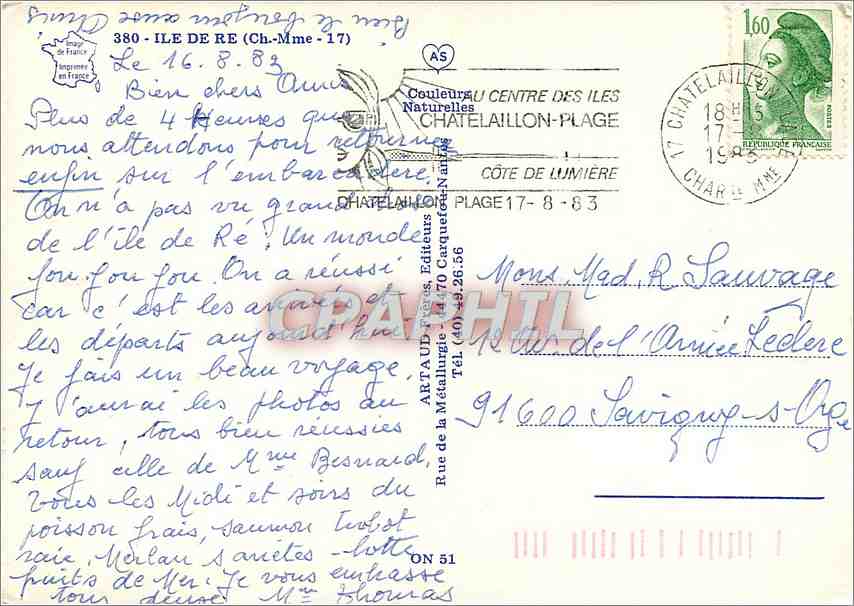 Bien le bonjour
380 - ILE DE RE (Ch.-Mme - 17)
Image
de France
Imprimée
en France
Le 16.8.83
Bien chers Amis
Plus de 4 Heures que
nous attendons pour retourner
enfin sur l'embarcadère.
On n'a pas vu grand chose
de l'île de Ré. Un monde
fou fou fou. On a réussi
car c'est les arrivés et
les départs aujourd'hui
Je fais un beau voyage.
J'aurai les photos au
retour, tous bien réussies
sauf celle de Mme Besnard.
Tous les Midi et soirs du
poisson frais, saumon turbot
raie, Merlan s arrêtes - lotte
fruits de Mer. Je vous embrasse
tous deux. Mme Thomas
AS
Couleurs
Naturelles
ARTAUD Frères, Editeurs
Rue de la Métallurgie - 44470 Carquefou-Nantes
Tél. (40) 49.26.56
ON 51
AU CENTRE DES ILES
CHATELAILLON-PLAGE
CÔTE DE LUMIÈRE
CHATELAILLON PLAGE 17-8-83
17 CHATELAILLON PLAGE
18H
17-
1983
CHAR TE MME
1,60
REPUBLIQUE FRANÇAISE
Mons. Mad. R Sauvage
12 Av. de l'Armée Leclerc
91600 Savigny-s-Orge
CPAPHIL